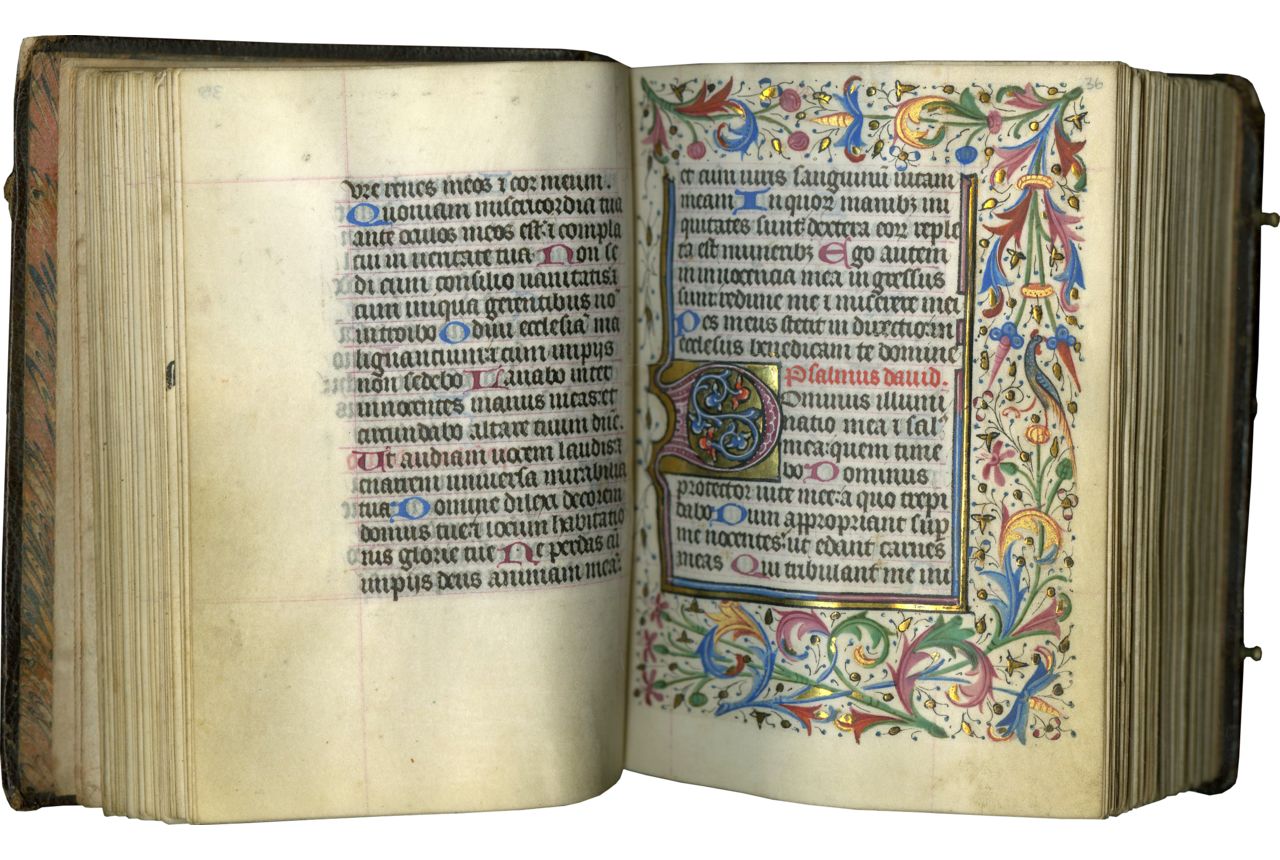 vre renes meos ⁊ cor meum.
Quoniam misericordia tua
ante oculos meos est: ⁊ compla
cui in veritate tua Non se
di cum consilio vanitatis: ⁊
cum iniqua gerentibus no
introibo Odiui ecclesiā ma
lignantium: ⁊ cum impijs
non sedebo Lauabo inter
innocentes manus meas: et
circundabo altare tuum dn̄e.
Ut audiam uocem laudis: ⁊
enarrem universa mirabilia
tua Domine dilexi decorem
domus tue: ⁊ locum habitatio
nis glorie tue Ne perdas cū
impijs deus animam meā:
36
et cum uiris sanguinū uitam
meam In quor manibꝫ ini
quitates sunt: dextera eor reple
ta est muneribꝫ Ego autem
in innocencia mea ingressus
sum: redime me ⁊ miserere mei
Pes meus stetit in directo: in
ecclesiis benedicam te domine
Psalmus dauid.
Dominus illumi
natio mea ⁊ sal⸗
mea: quem time
bo Dominus
protector uite mee: a quo trepi
dabo Dum appropriant sup
me nocentes: ut edant carnes
meas Qui tribulant me ini